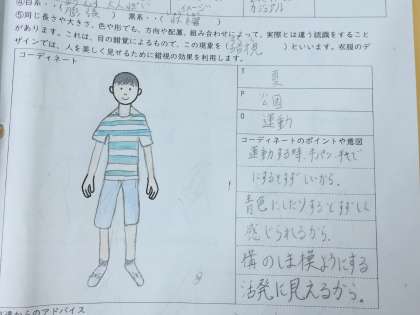 ④白系・・( 膨張 ) 黒系・・( 収縮 )
⑤同じ長さや大きさ、色や形でも、方向や配置、組み合わせによって、実際とは違う認識をすること
があります。これは、目の錯覚によるもので、この現象を( 錯視 )といいます。衣服のデ
ザインでは、人を美しく見せるために錯視の効果を利用します。
コーディネート
T
夏
P
公園
O
運動
コーディネートのポイントや意図
運動する時、半パン、半そで
にするとすずしいから。
青色にしたりするとすずしく
感じられるから。
横のしま模ようにする
活発に見えるから。
からのアドバイス